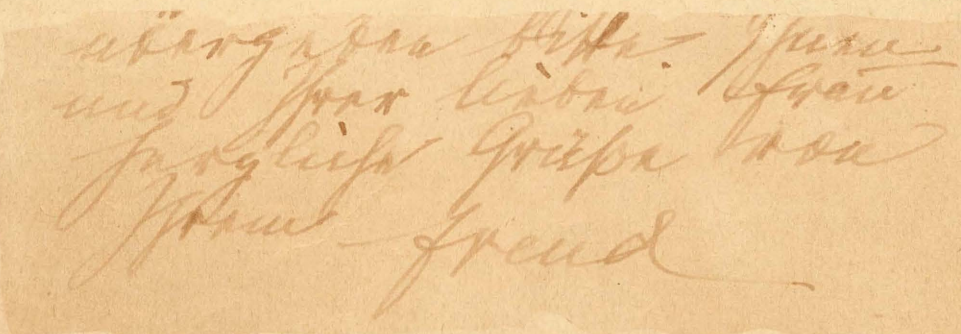 übergeben bitte. Ihnen
und Ihrer lieben Frau
herzliche Grüße von
Ihrem Freud